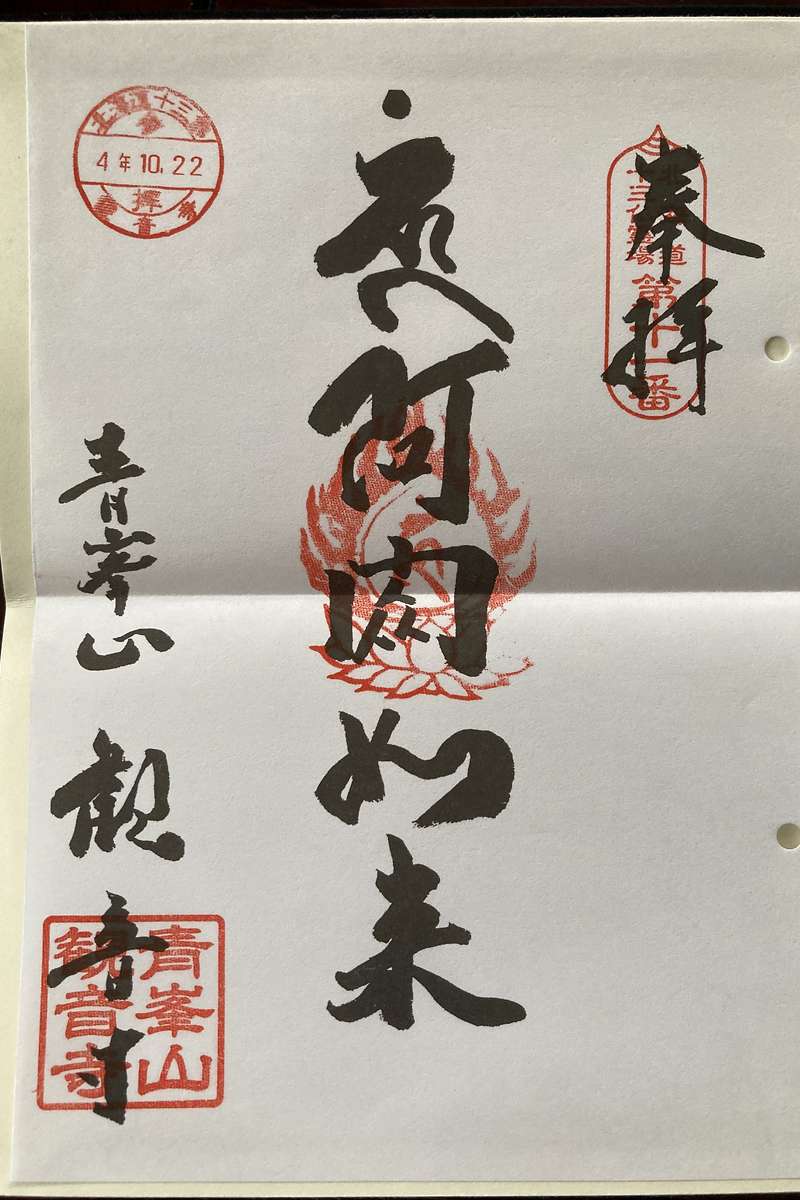 奉拝
北海道
十三佛霊場
第十一番
阿閦如来
4年10.22
青峯山 観音寺
青峯山
観音寺